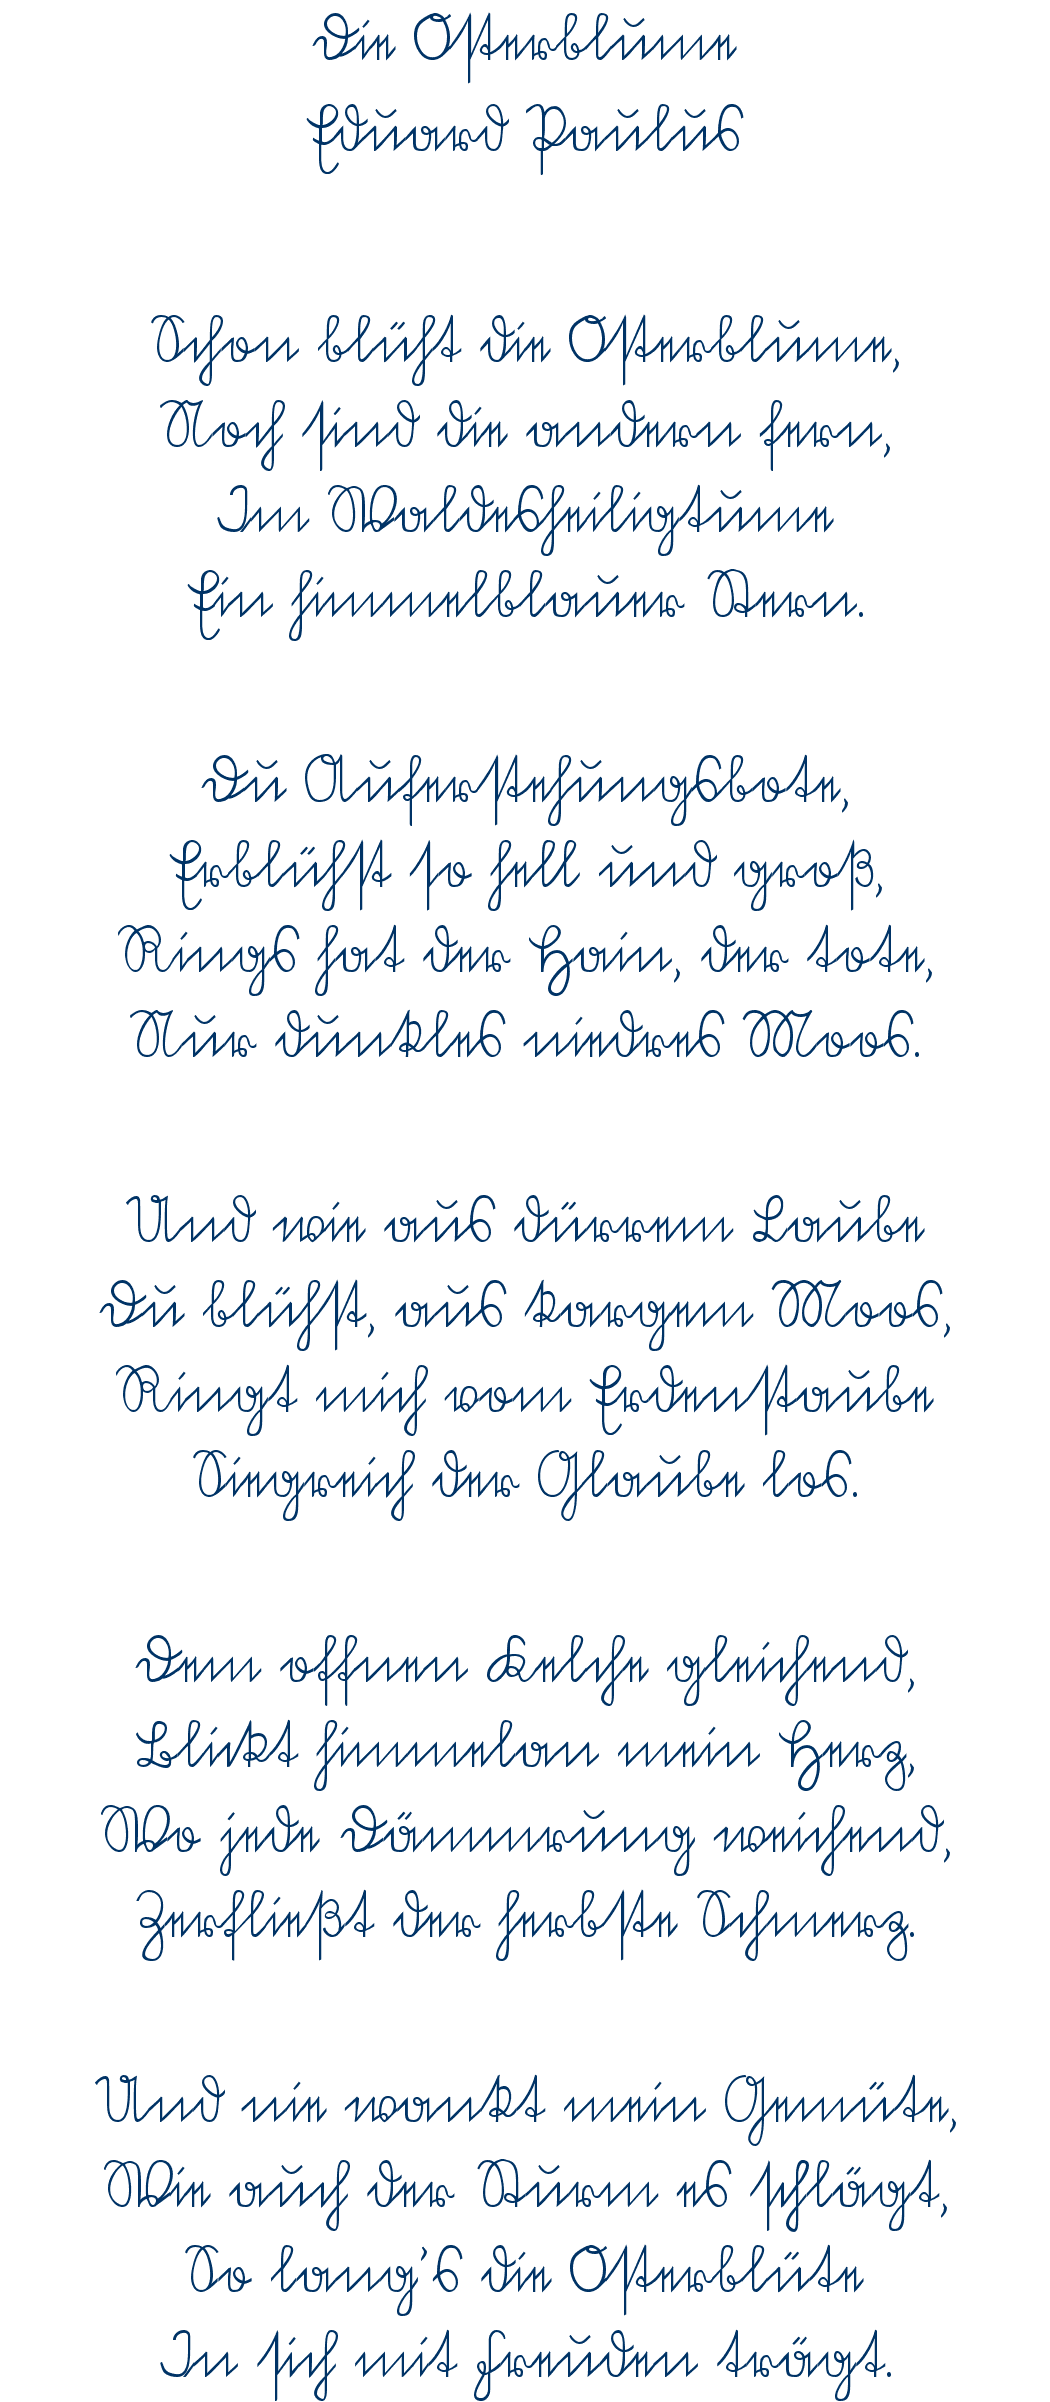 Die Osterblume
Eduard Paulus
Schon blüht die Osterblume,
Noch sind die andern fern,
Im Waldesheiligtume
Ein himmelblauer Stern.
Du Auferstehungsbote,
Erblühst so hell und groß,
Rings hat der Hain, der tote,
Nur dunkles niedres Moos.
Und wie aus dürrem Laube
Du blühst, aus kargem Moos,
Ringt mich vom Erdenstaube
Siegreich der Glaube los.
Dem offnen Kelche gleichend,
Blickt himmelan mein Herz,
Wo jede Dämmrung weichend,
Zerfließt der herbste Schmerz.
Und nie wankt mein Gemüte,
Wie auch der Sturm es schlägt,
So lang's die Osterblüte
In sich mit Freuden trägt.